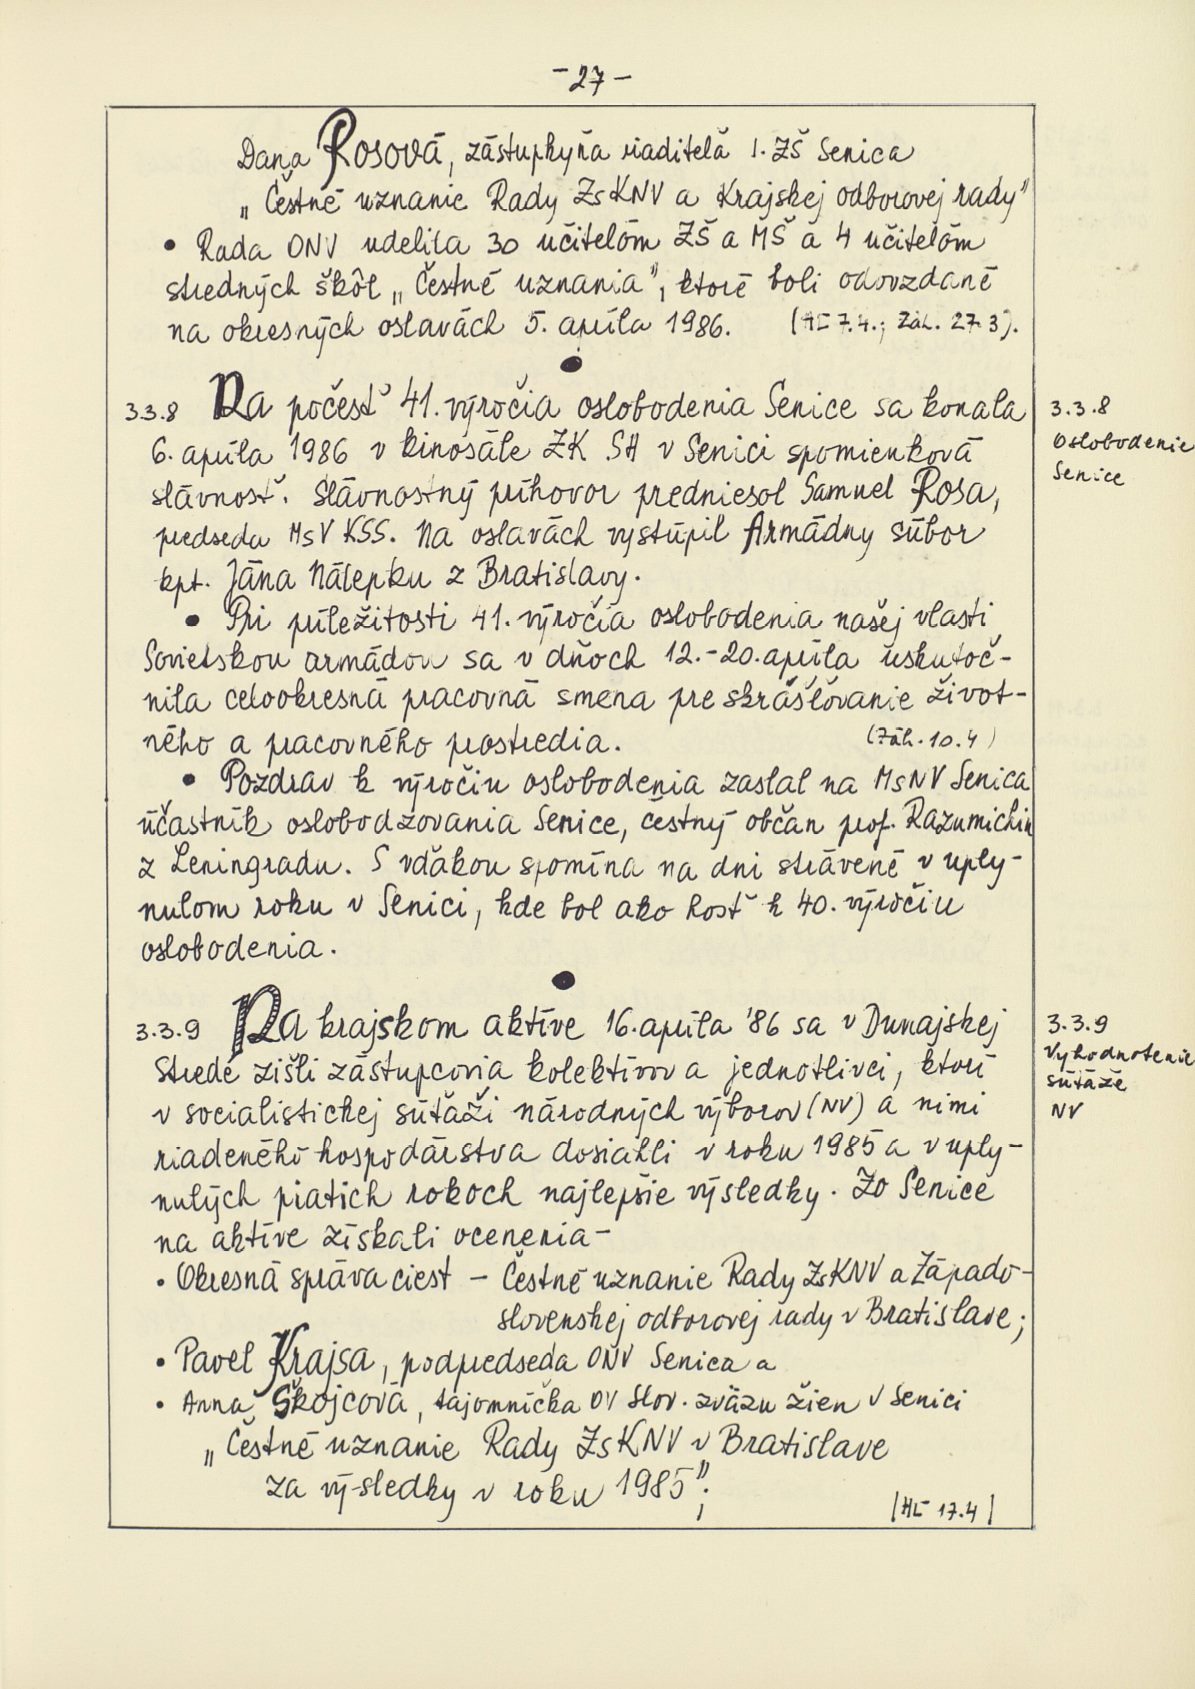 -27-
Dana Rosová, zástupkyňa riaditeľa I. ZŠ Senica
„Čestné uznanie Rady ZsKNV a Krajskej odborovej rady"
• Rada ONV udelila 30 učitelôm ZŠ a MŠ a 4 učitelôm
stredných škôl „Čestné uznania", ktoré boli odovzdané
na okresných oslavách 5. apríla 1986. (HĽ 7.4.; Záh. 27.3).
3.3.8 Na počesť 41. výročia oslobodenia Senice sa konala
6. apríla 1986 v kinosále ZK SH v Senici spomienková
slávnosť. Slávnostný príhovor predniesol Samuel Rosa,
predseda MsV KSS. Na oslavách vystúpil Armádny súbor
kpt. Jána Nálepku z Bratislavy.
• Pri príležitosti 41. výročia oslobodenia našej vlasti
Sovietskou armádou sa v dňoch 12.-20. apríla uskutoč-
nila celookresná pracovná smena pre skrášľovanie život-
ného a pracovného prostredia. (Záh. 10.4)
• Pozdrav k výročiu oslobodenia zaslal na MsNV Senica
účastník oslobodzovania Senice, čestný občan prof. Razumichin
z Leningradu. S vďakou spomína na dni strávené v uply-
nulom roku v Senici, kde bol ako hosť k 40. výročiu
oslobodenia.
3.3.8
Oslobodenie
Senice
3.3.9 Na krajskom aktíve 16. apríla '86 sa v Dunajskej
Strede zišli zástupcovia kolektívov a jednotlivci, ktorí
v socialistickej súťaži národných výborov (NV) a nimi
riadeného hospodárstva dosiahli v roku 1985 a v uply-
nulých piatich rokoch najlepšie výsledky. Zo Senice
na aktíve získali ocenenia-
• Okresná správa ciest - Čestné uznanie Rady ZsKNV a Západo-
slovenskej odborovej rady v Bratislave;
• Pavel Krajsa, podpredseda ONV Senica a
• Anna Škojcová, tajomníčka OV Slov. zväzu žien v Senici
„Čestné uznanie Rady ZsKNV v Bratislave
za výsledky v roku 1985";
(HĽ 17.4)
3.3.9
Vyhodnotenie
súťaže
NV